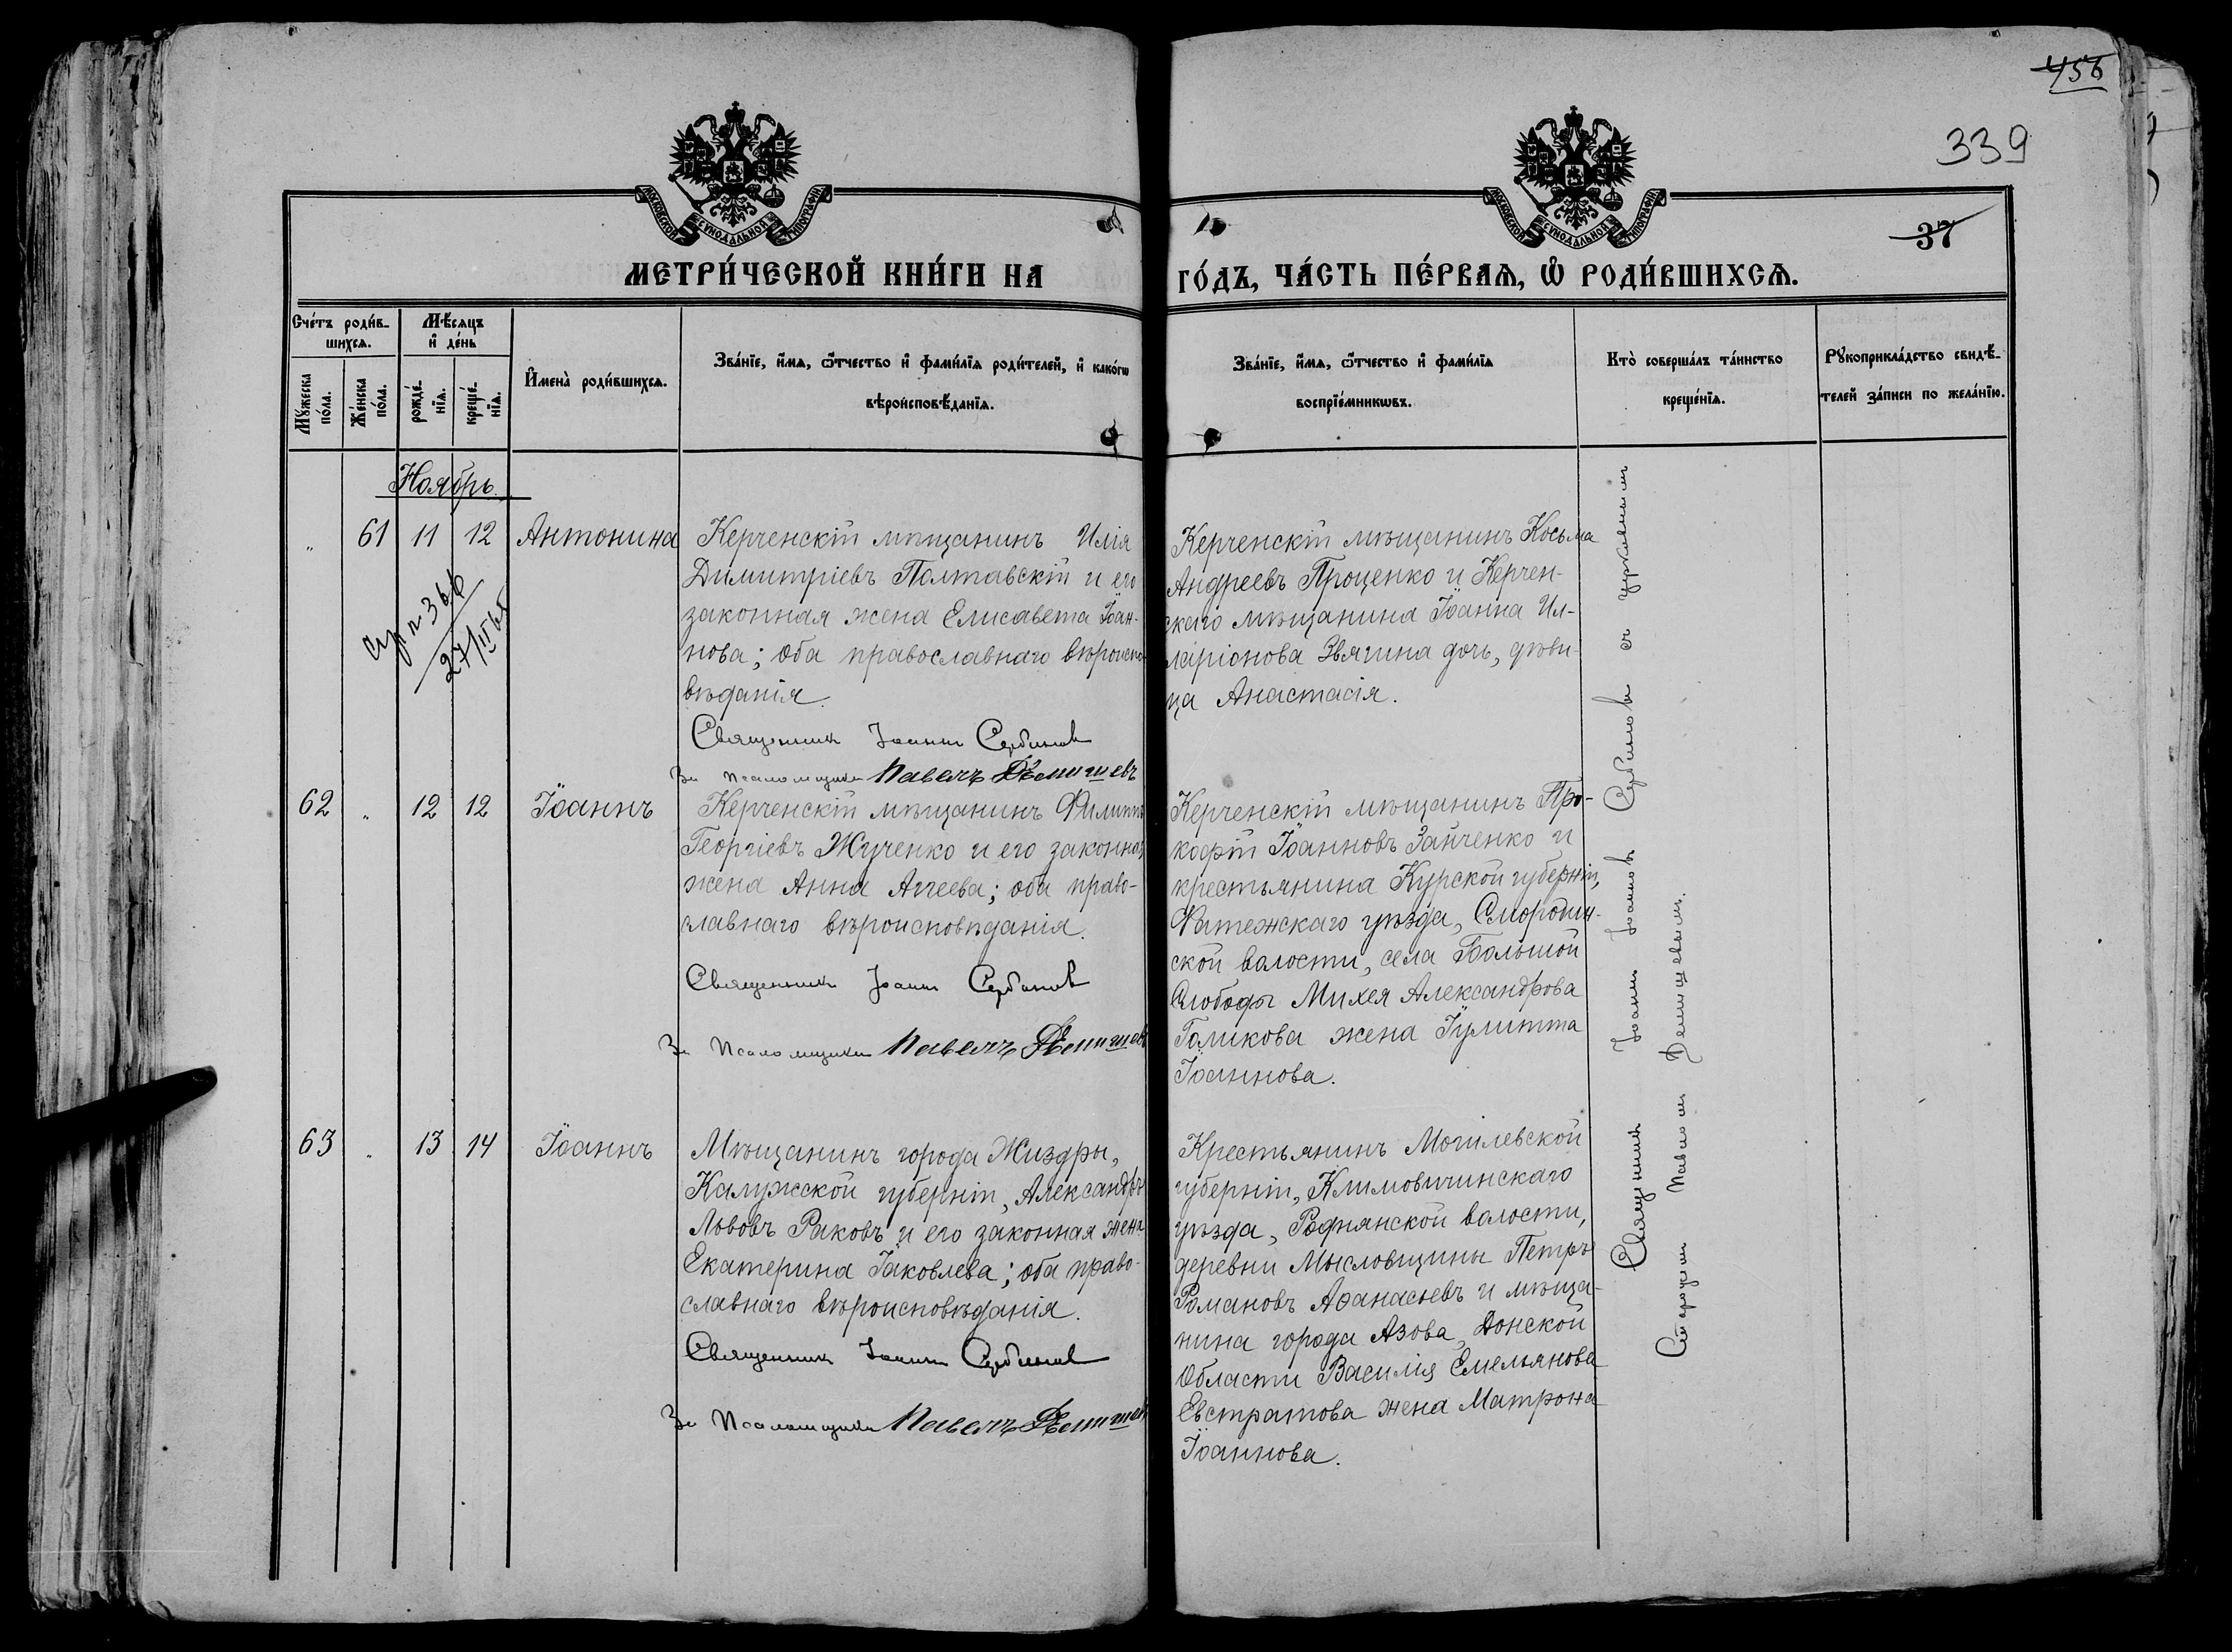 456
339
37
МОСКОВСКОЙ СѴНОДАЛЬНОЙ ТИПОГРАФІИ
МОСКОВСКОЙ СѴНОДАЛЬНОЙ ТИПОГРАФІИ
МЕТРИ́ЧЕСКОЙ КНИ́ГИ НА
ГО́ДЪ, ЧА́СТЬ ПЕ́РВАЯ, Ѡ҆ РОДИ́ВШИХСѦ.
Сче́тъ роди́в-
шихсѧ.
Мѣ́сяцъ
и҆ де́нь
Мꙋ́жеска
по́ла.
Же́нска
по́ла.
рожде́-
нїѧ.
креще́-
нїѧ.
И҆мена̀ роди́вшихсѧ.
Зва́нїе, и҆́мѧ, ѻ҆́тчество и҆ фами́лїѧ роди́телей, и҆ како́гѡ
вѣроисповѣ́данїѧ.
Зва́нїе, и҆́мѧ, ѻ҆́тчество и҆ фами́лїѧ
воспрїе́мникѡвъ.
Кто̀ соверша́лъ та́инство
креще́нїѧ.
Рꙋкоприкла́дство свидѣ́-
телей за́писи по жела́нїю.
Ноябрь.
" 61 11 12 Антонина
Керченскій мѣщанинъ Илія
Димитріевъ Полтавскій и его
законная жена Елисавета Іоан-
нова; оба православнаго вѣроиспо-
вѣданія.
Священникъ Іоаннъ Сербиновъ
За псаломщика Павелъ Демишевъ
366
27/II
Керченскій мѣщанинъ Косьма
Андреевъ Проценко и Керчен-
скаго мѣщанина Іоанна Ил-
ларіонова Звягина дочь, дѣви-
ца Анастасія.
62 " 12 12 Іоаннъ
Керченскій мѣщанинъ Филиппъ
Георгіевъ Жученко и его законная
жена Анна Аггеева; оба право-
славнаго вѣроисповѣданія.
Священникъ Іоаннъ Сербиновъ
За Псаломщика Павелъ Демишевъ
Керченскій мѣщанинъ Про-
кофій Іоанновъ Зайченко и
крестьянина Курской губерніи,
Фатежскаго уѣзда, Смородин-
ской волости, села Большой
Слободы Михея Александрова
Голикова жена Іулитта
Іоаннова.
63 " 13 14 Іоаннъ
Мѣщанинъ города Жиздры,
Калужской губерніи, Александръ
Львовъ Раковъ и его законная жена
Екатерина Іаковлева; оба право-
славнаго вѣроисповѣданія.
Священникъ Іоаннъ Сербиновъ
За Псаломщика Павелъ Демишевъ
Крестьянинъ Могилевской
губерніи, Климовичинскаго
уѣзда, Роднянской волости,
деревни Мысловщины Петръ
Романовъ Аѳанасьевъ и мѣща-
нина города Азова, Донской
Области Василія Емельянова
Евстратова жена Матрона
Іоаннова.
Священникъ Іоаннъ Іоанновъ Сербиновъ съ церковнымъ
Сторожемъ Павломъ Демишевымъ.